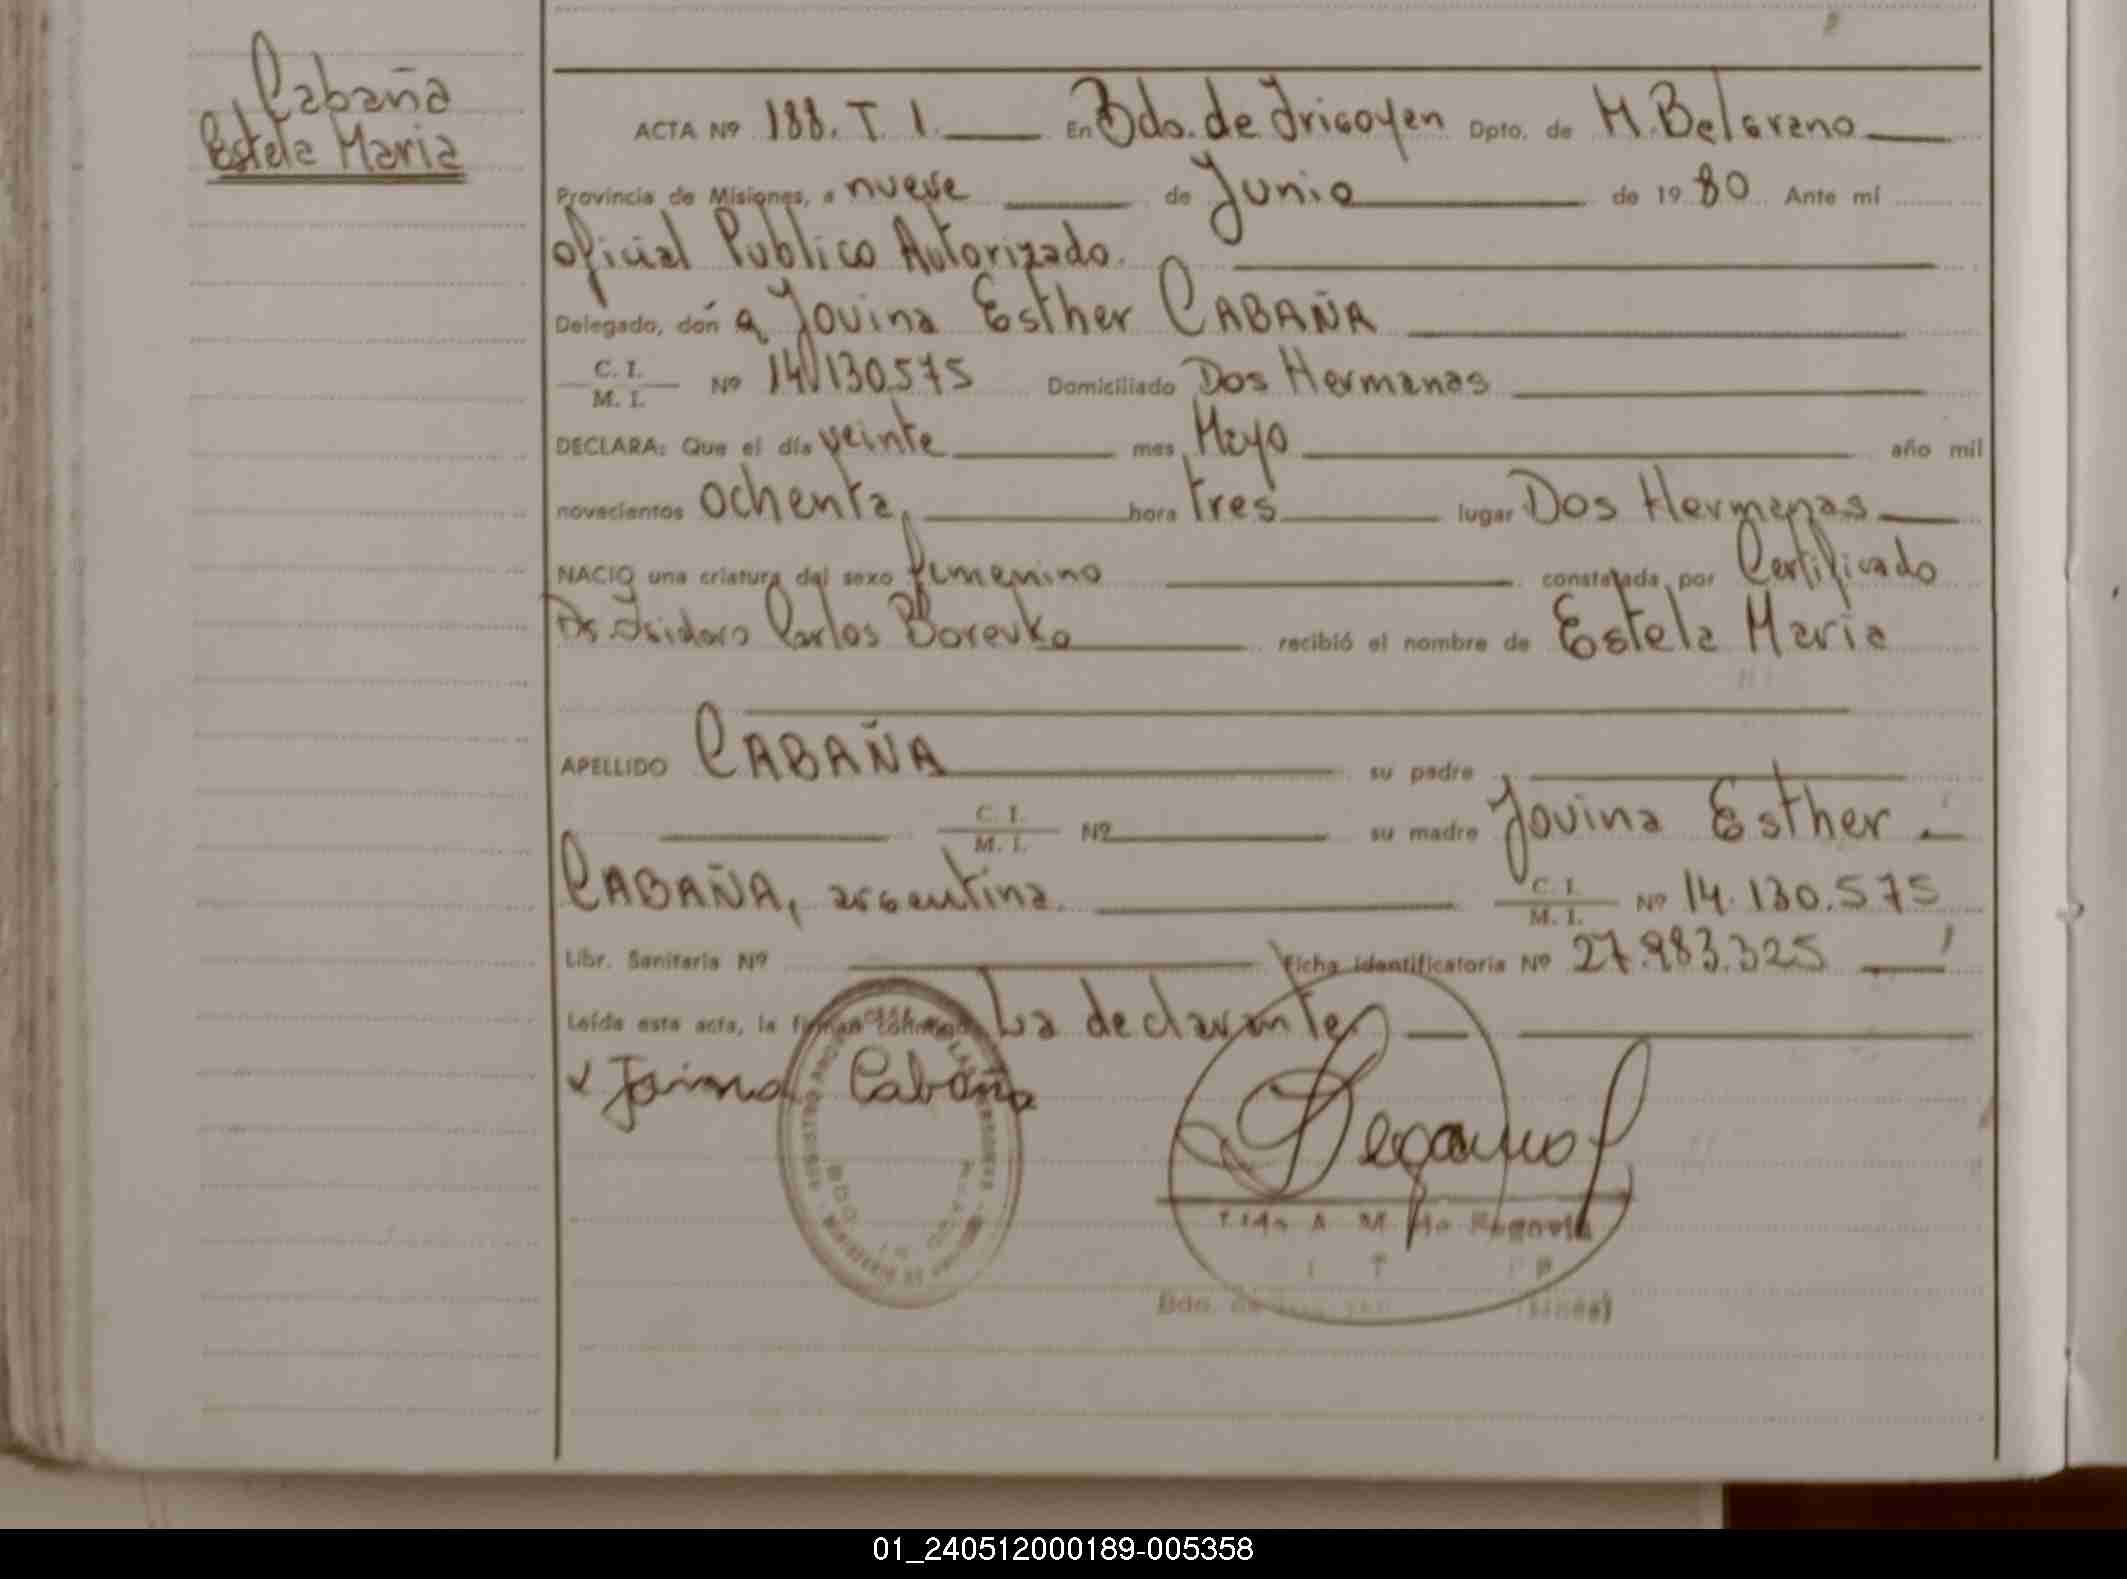 Cabaña
Estela Maria
ACTA Nº 188. T. 1. En Bdo. de Irigoyen Dpto. de M. Belgrano
Provincia de Misiones, a nueve de Junio de 19 80 Ante mí
oficial Publico Autorizado.
Delegado, don a Jovina Esther CABAÑA
C. I.
M. I. Nº 14.130.575 Domiciliado Dos Hermanas
DECLARA: Que el día veinte mes Mayo año mil
novecientos ochenta, hora tres lugar Dos Hermanas
NACIO una criatura del sexo femenino constatada por Certificado
Dr. Isidoro Carlos Borevko recibió el nombre de Estela Maria
APELLIDO CABAÑA su padre
C. I.
M. I. Nº su madre Jovina Esther
CABAÑA, argentina. C. I.
M. I. Nº 14.130.575
Libr. Sanitaria Nº Ficha identificatoria Nº 27.983.325
Leída esta acta, la firman conmigo La declarante
Cabaña
Bdo. de
01_240512000189-005358